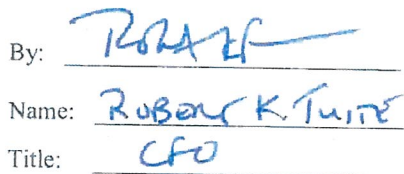 By:
Name: ROBERT K. TUITE
Title: CFO